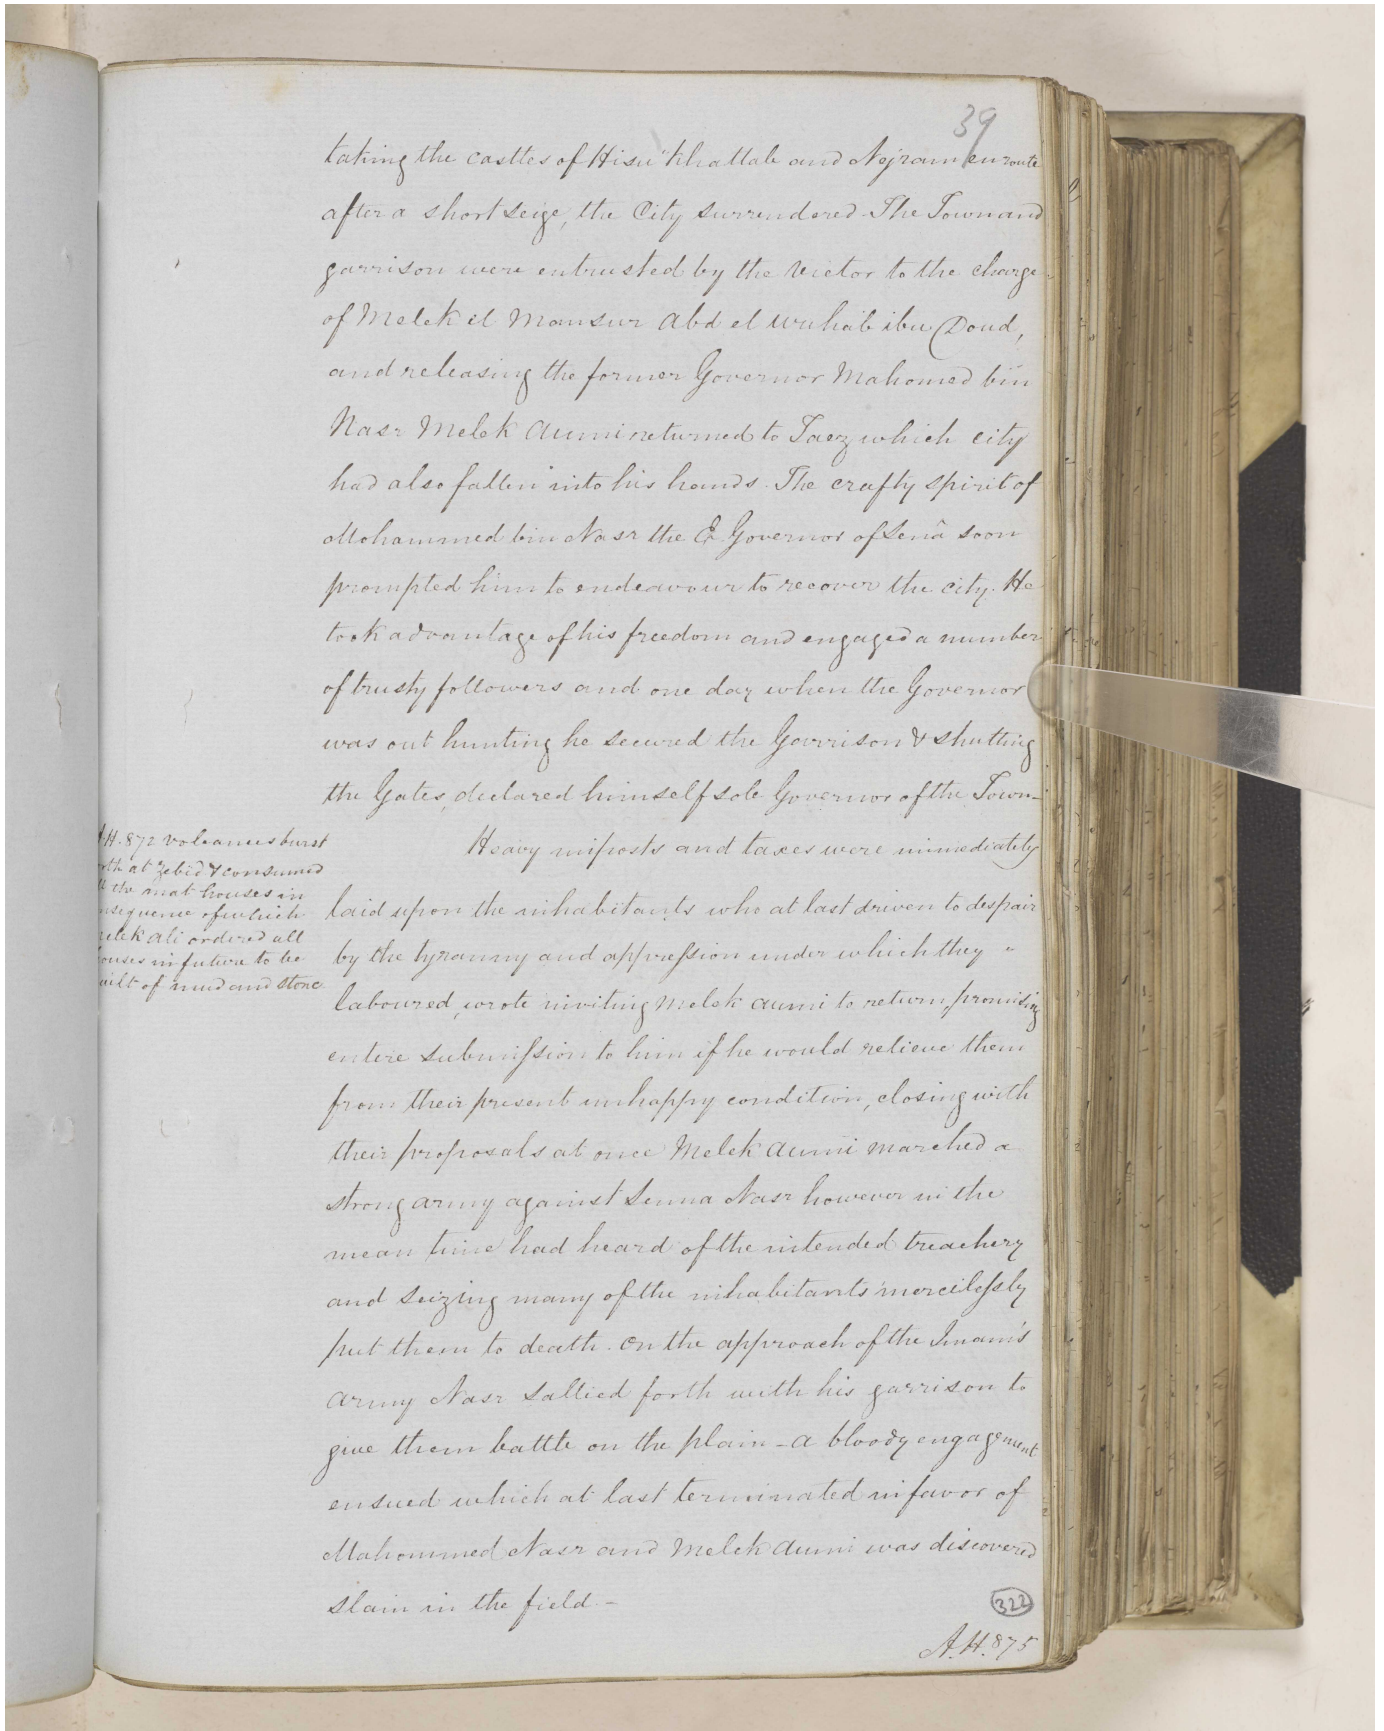 39
taking the castles of Hisn Khattab and Nejram en route
after a short seige, the City surrendered. The Town and
garrison were entrusted by the Victor to the charge
of Melek el Mansur Abd el Wuhab ibn Doud,
and releasing the former Governor Mahomed bin
Nasr Melek Aumi returned to Taez which city
had also fallen into his hands. The crafty spirit of
Mohammed bin Nasr the Ex Governor of Senâ soon
prompted him to endeavour to recover the city. He
took advantage of his freedom and engaged a number
of trusty followers and one day when the Governor
was out hunting he secured the Garrison & shutting
the Gates, declared himself sole Governor of the Town-
Heavy imposts and taxes were immediately
laid upon the inhabitants who at last driven to despair
by the tyranny and oppression under which they
laboured, wrote inviting Melek Aumi to return, promising
entire submission to him if he would relieve them
from their present unhappy condition, closing with
their proposals at once Melek Aumi marched a
strong army against Senna Nasr however in the
mean time had heard of the intended treachery
and seizing many of the inhabitants mercilessly
put them to death. On the approach of the Imam's
army Nasr sallied forth with his garrison to
give them battle on the plain - a bloody engagement
ensued which at last terminated in favor of
Mahommed Nasr and Melek Aumi was discovered
slain in the field -
A.H. 872 volcanoes burst
rth at Zebid & consumed
ll the mat houses in
nsequence of which
elek Ali ordered all
ouses in future to be
uilt of mud and stone
322
A.H. 875